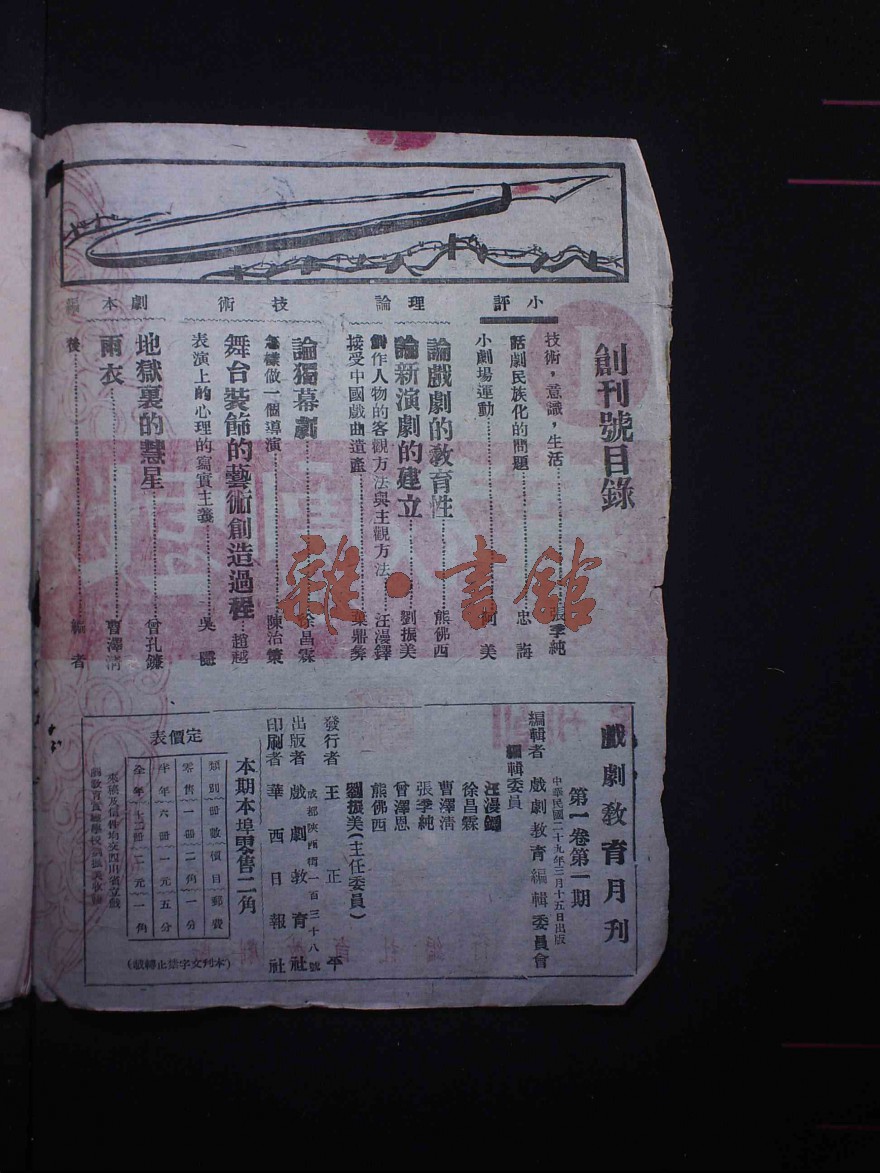 創刊號目錄
小評
技術，意識，生活……張季純
話劇民族化的問題……忠誨
小劇場運動……柯美
理論
論戲劇的教育性……熊佛西
論新演劇的建立……劉振美
創作人物的客觀方法與主觀方法……汪漫鐸
接受中國戲曲遺產……葉鼎
技術
論獨幕劇……徐昌霖
怎樣做一個導演……陳治策
舞台裝飾的藝術創造過程……趙越
表演上的心理的寫實主義……吳
劇本
地獄裏的慧星……曾孔
雨衣……曹澤淸
編後……編者
雜·書館
戲劇教育月刊
第一卷第一期
中華民國二十九年三月十五日出版
編輯者 戲劇教育編輯委員會
編輯委員
汪漫鐸
徐昌霖
曹澤淸
張季純
曾澤恩
熊佛西
劉振美（主任委員）
發行者 王正平
成都陝西街一百三十八號
出版者 戲劇教育社
印刷者 華西日報社
本期本埠零售二角
定價表
類別 冊數 價目 郵費
零售 一冊 二角 一分
半年 六冊 一元 五分
全年 十二冊 二元 一角
（本刊文字禁止轉載）